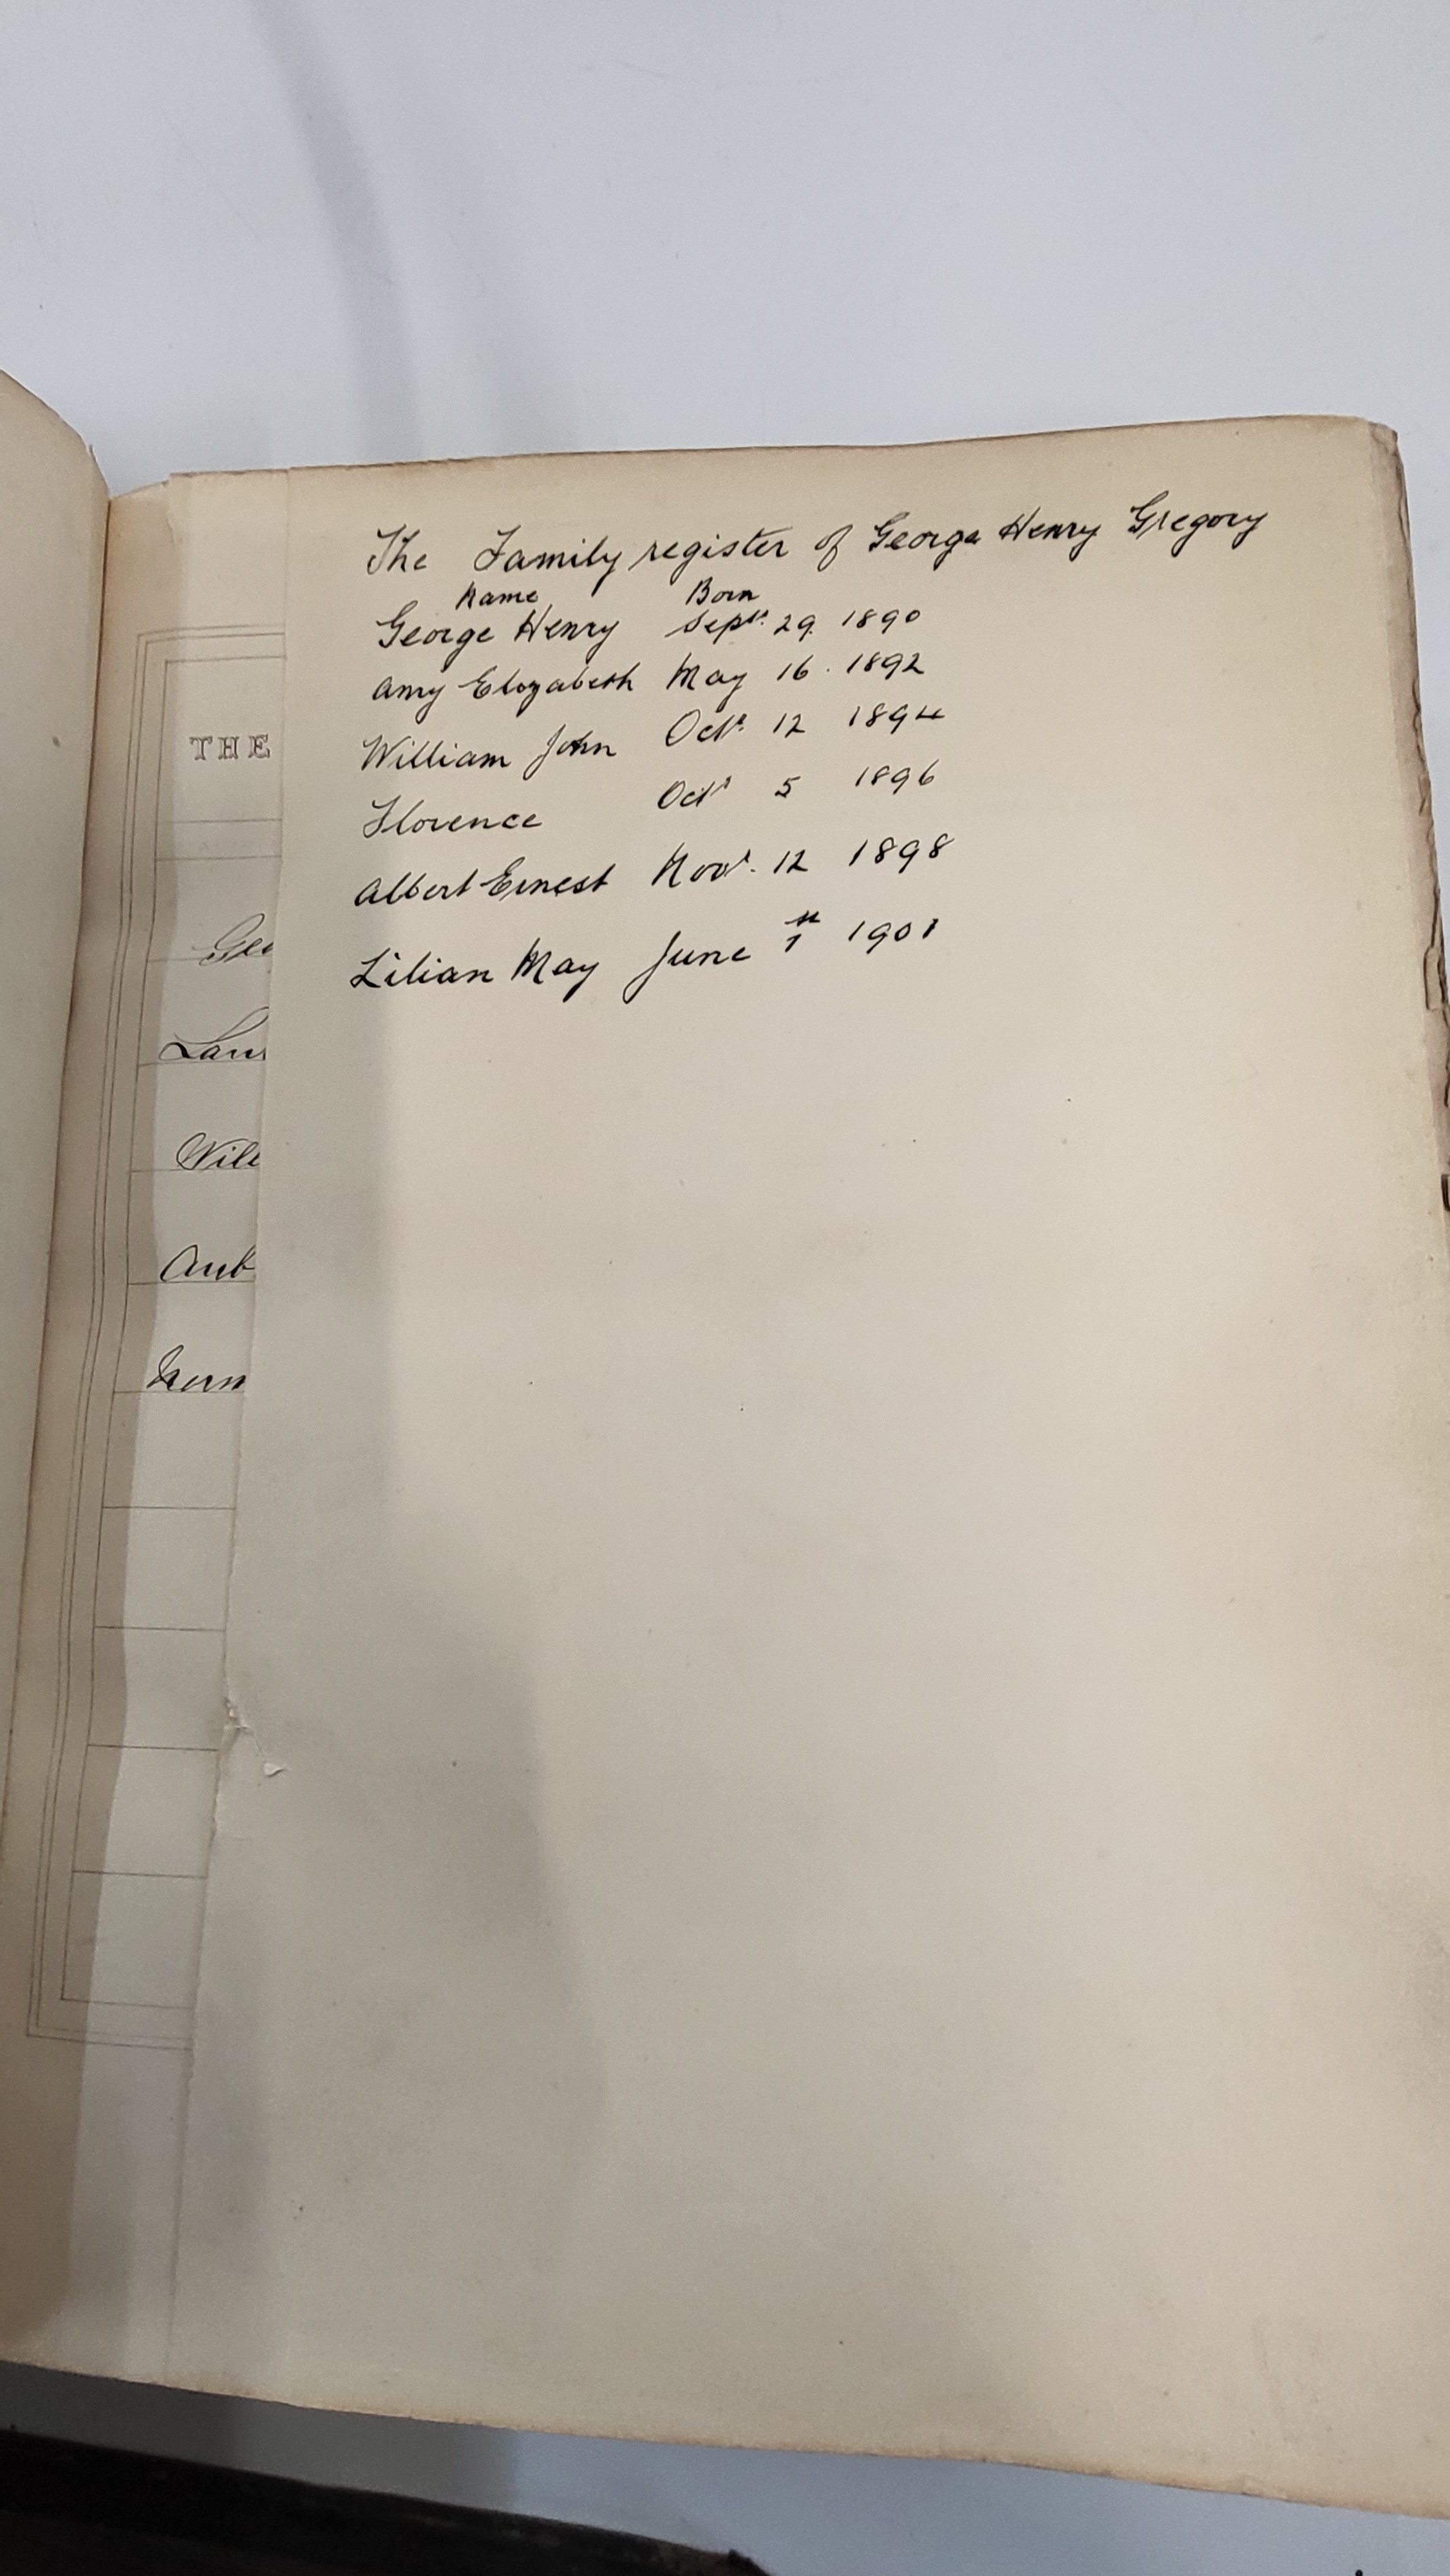 The Family register of George Henry Gregory
Name Born
George Henry Sept. 29. 1890
Amy Elizabeth May 16. 1892
William John Oct. 12 1894
Florence Oct. 5 1896
Albert Ernest Nov. 12 1898
Lilian May June 1st 1901
THE
Geo
Laur
Will
Aub